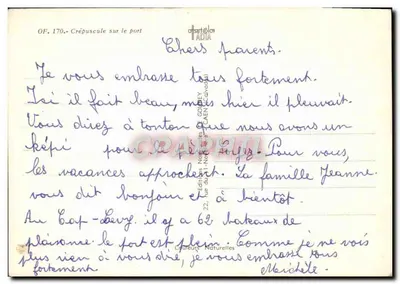 OF. 170.- Crépuscule sur le port
Chers parents.
Je vous embrasse tous fortement.
Ici il fait beau, mais hier il pleuvait.
Vous direz à tonton que nous avons un
képi pour le père. Pour vous,
les vacances approchent. La famille Jeanne
vous dit bonjour et à bientôt.
Au Cap-Levy il y a 62 bateaux de
plaisance le port est plein. Comme je ne vois
plus rien à vous dire, je vous embrasse tous
fortement. Michèle.
Couleurs Naturelles